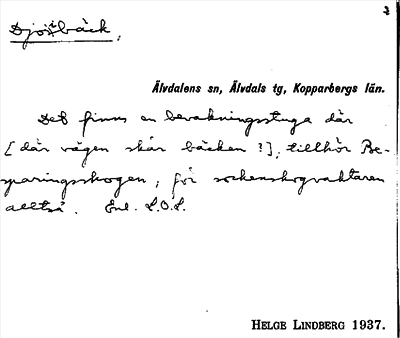 Djöibäck,
Älvdalens sn, Älvdals tg, Kopparbergs län.
Det finns en bevakningsstuga där
[där vägen skär bäcken ?], tillhör Be-
sparingsskogen, för sockenskogvaktaren
alltså. Enl. L.O.L.
HELGE LINDBERG 1937.